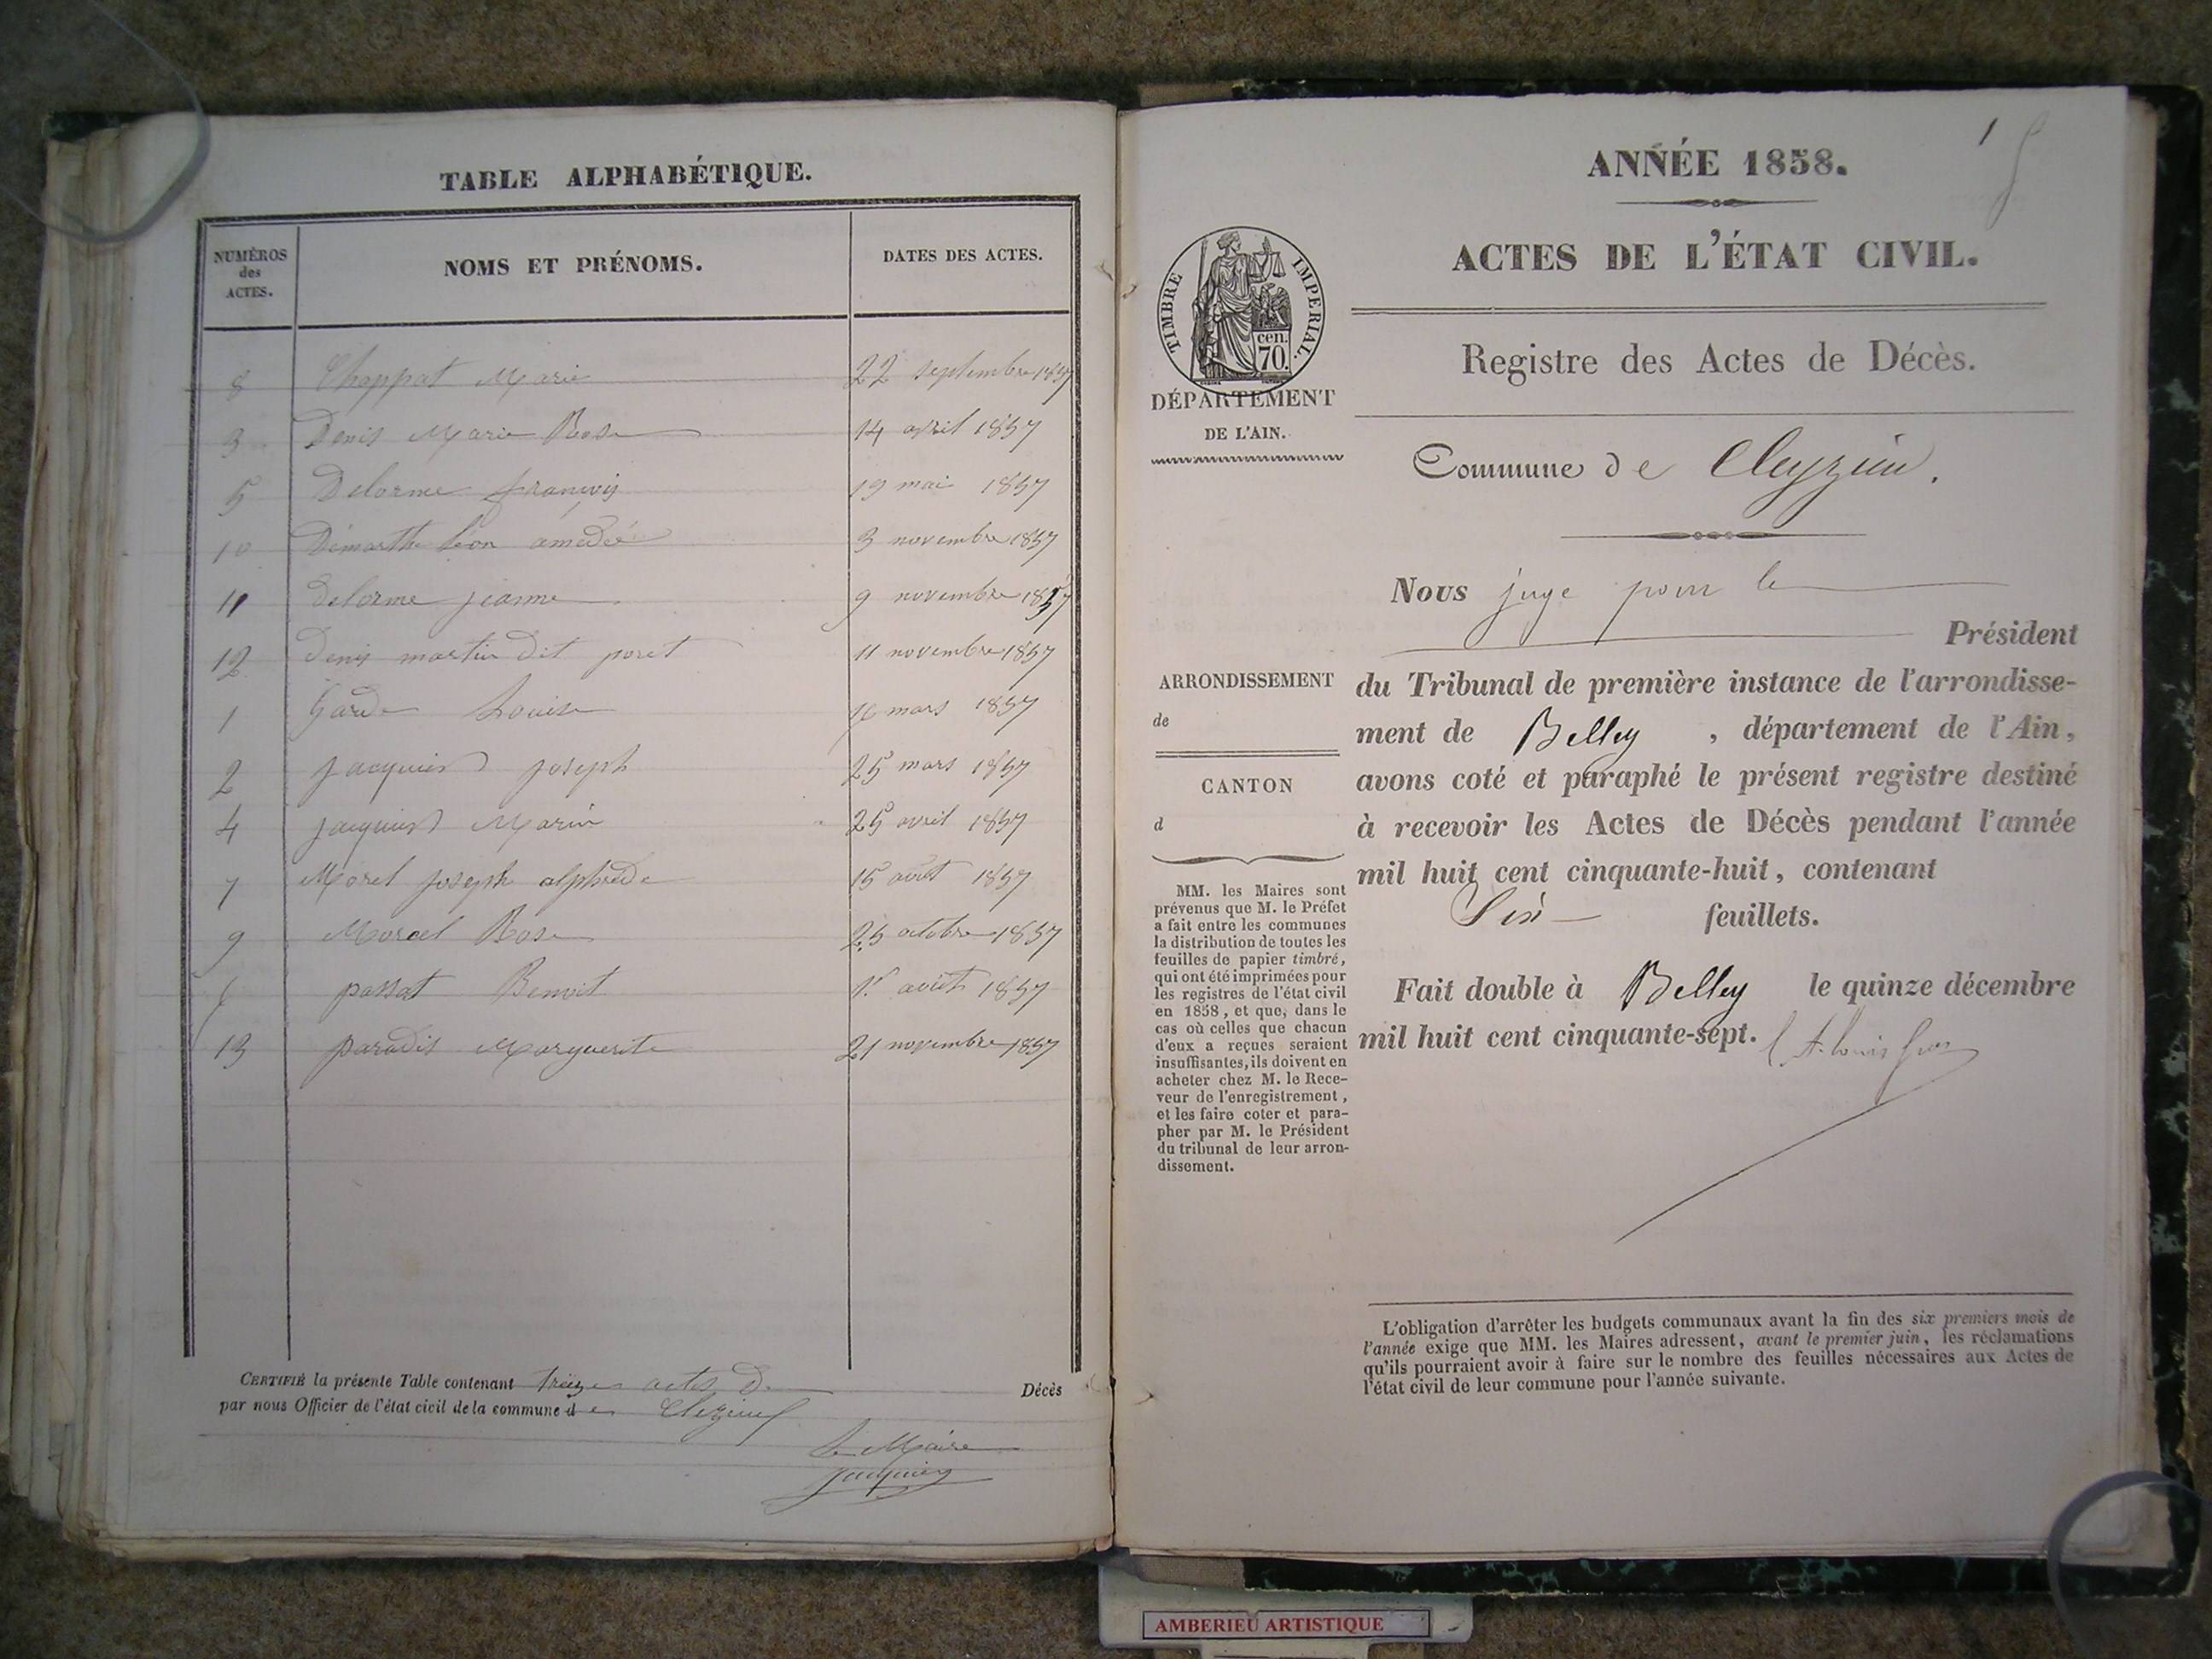 TABLE ALPHABÉTIQUE.
NUMÉROS des ACTES. NOMS ET PRÉNOMS. DATES DES ACTES.
8 Chappat Marie 22 septembre 1857
3 Denis Marie Rose 14 avril 1857
5 Delorme françois 19 mai 1857
10 Démarthe Léon amédée 3 novembre 1857
11 Delorme jeanne 9 novembre 1857
12 Denis martin dit poret 11 novembre 1857
1 Garde Louise mars 1857
2 jacquier joseph 25 mars 1857
4 jacquier 25 avril 1857
7 Morel joseph alphrède 15 août 1857
9 Morel Rose 25 octobre 1857
6 passat Benoit 1er août 1857
13 paradis Marguerite 21 novembre 1857
CERTIFIÉ la présente Table contenant treize actes de Décès
par nous Officier de l'état civil de la commune de
Le Maire
jacquier
1
ANNÉE 1858.
ACTES DE L'ÉTAT CIVIL.
TIMBRE IMPERIAL.
cen. 70.
Registre des Actes de Décès.
DÉPARTEMENT
DE L'AIN.
Commune de Cleyzieu.
Nous juge pour le
Président
ARRONDISSEMENT
de
CANTON
d
du Tribunal de première instance de l'arrondisse-
ment de Belley, département de l'Ain,
avons coté et paraphé le présent registre destiné
à recevoir les Actes de Décès pendant l'année
mil huit cent cinquante-huit, contenant
Six feuillets.
Fait double à Belley le quinze décembre
mil huit cent cinquante-sept.
MM. les Maires sont
prévenus que M. le Préfet
a fait entre les communes
la distribution de toutes les
feuilles de papier timbré,
qui ont été imprimées pour
les registres de l'état civil
en 1858, et que, dans le
cas où celles que chacun
d'eux a reçues seraient
insuffisantes, ils doivent en
acheter chez M. le Rece-
veur de l'enregistrement,
et les faire coter et para-
pher par M. le Président
du tribunal de leur arron-
dissement.
L'obligation d'arrêter les budgets communaux avant la fin des six premiers mois de
l'année exige que MM. les Maires adressent, avant le premier juin, les réclamations
qu'ils pourraient avoir à faire sur le nombre des feuilles nécessaires aux Actes de
l'état civil de leur commune pour l'année suivante.
AMBERIEU ARTISTIQUE